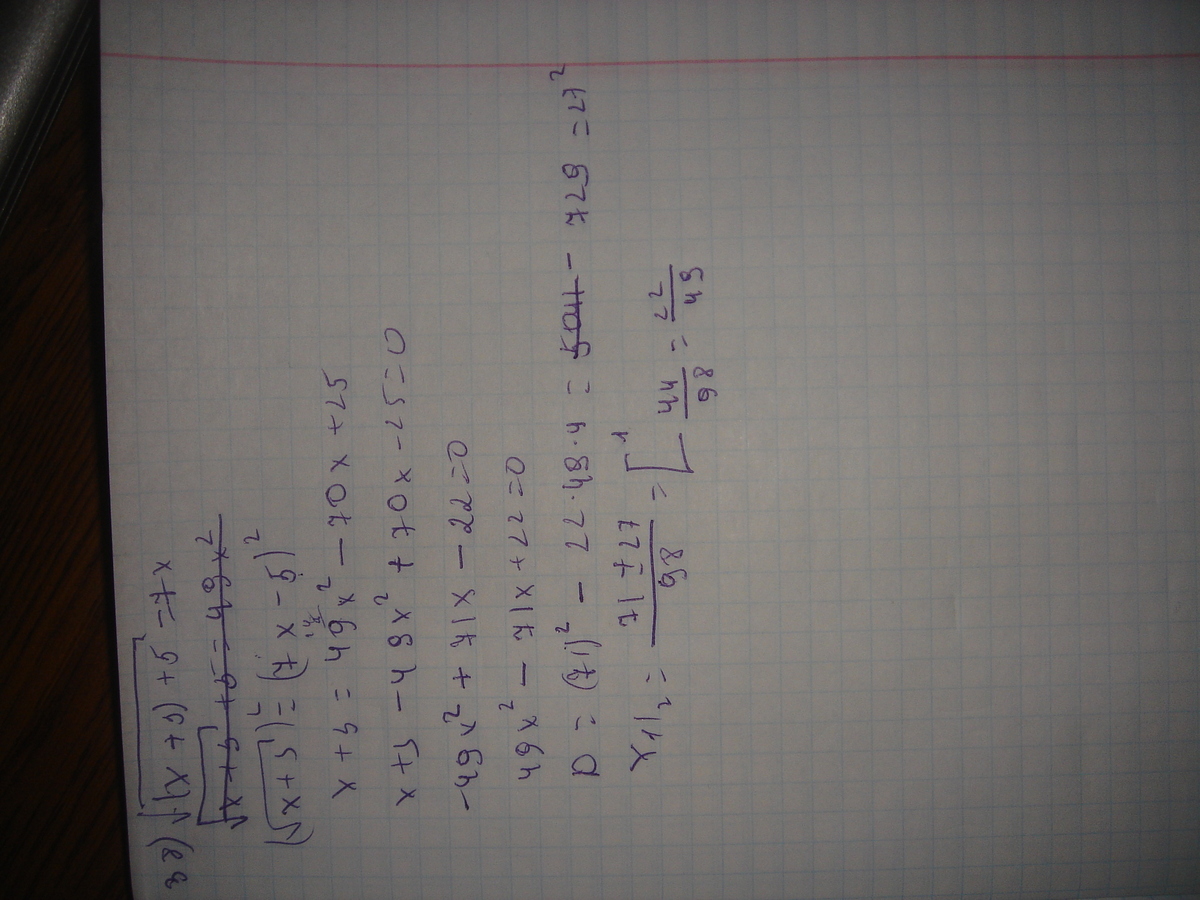 38) √(x+3)+5 = 7x
√x+3 +5 = 49x²
(√x+3)² = (7x-5)²
x+3 = 49x² - 70x + 25
x+3 - 49x² + 70x - 25 = 0
-49x² + 71x - 22 = 0
49x² - 71x + 22 = 0
D = (71)² - 22·49·4 = 5041 - 729 = 27²
x₁/₂ = 71±27/98 = [1
44/98 = 22/49